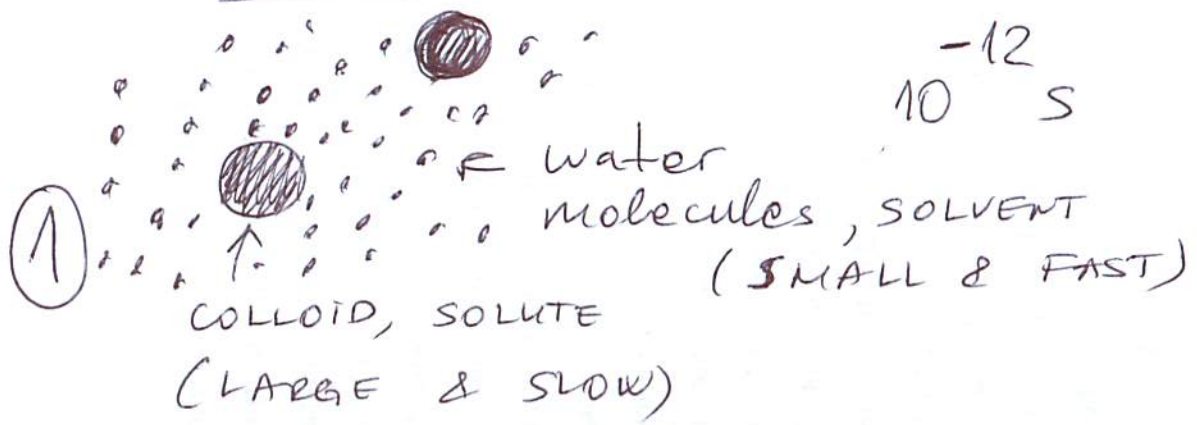 10^-12 s
← water
molecules, SOLVENT
(SMALL & FAST)
①
COLLOID, SOLUTE
(LARGE & SLOW)